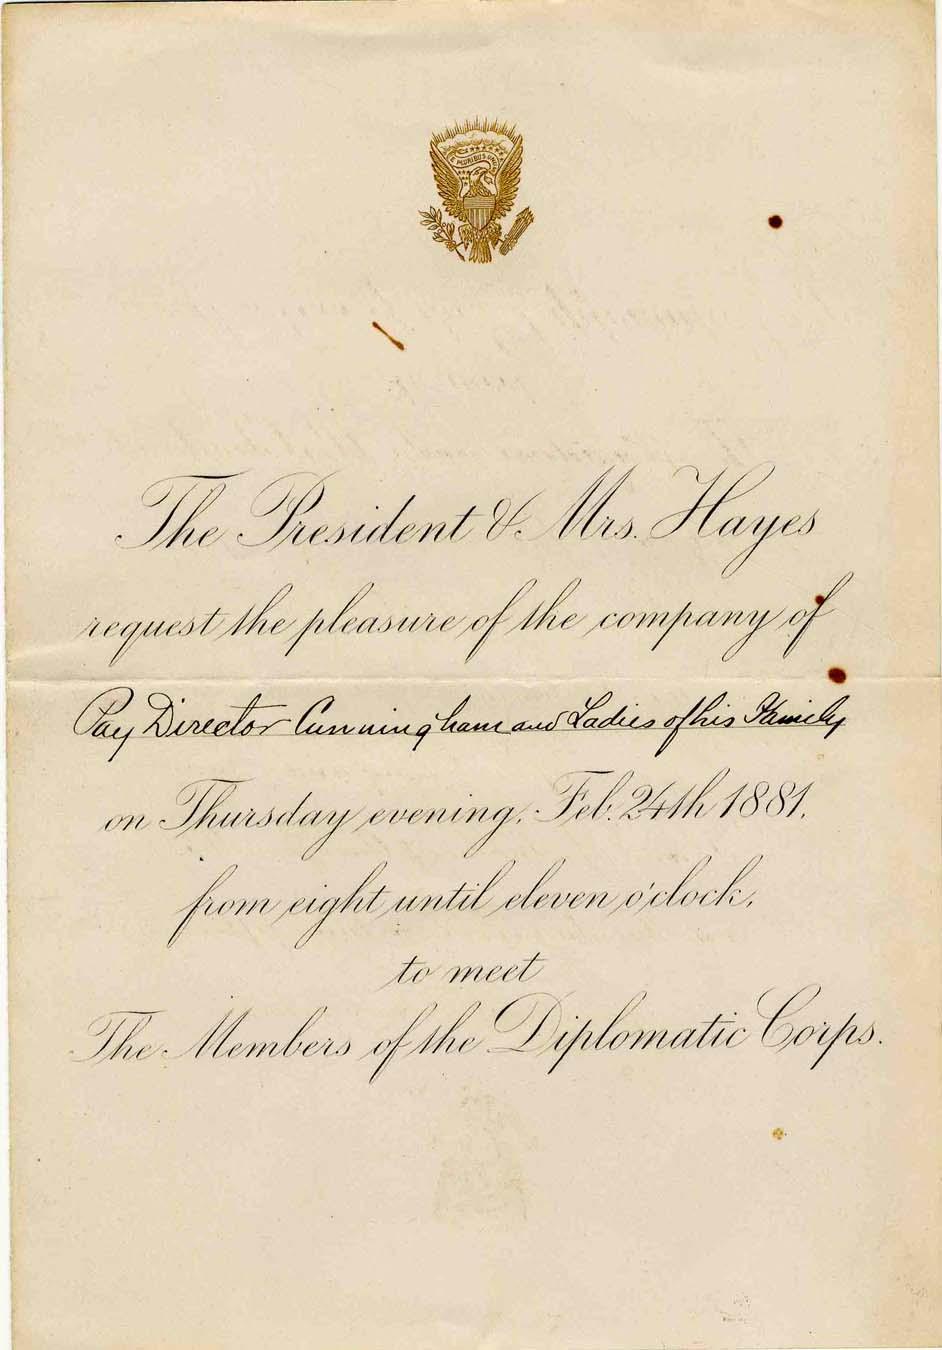 E PLURIBUS UNUM
The President & Mrs. Hayes
request the pleasure of the company of
Pay Director Cunningham and Ladies of his Family
on Thursday evening, Feb. 24th 1881,
from eight until eleven o'clock,
to meet
The Members of the Diplomatic Corps.